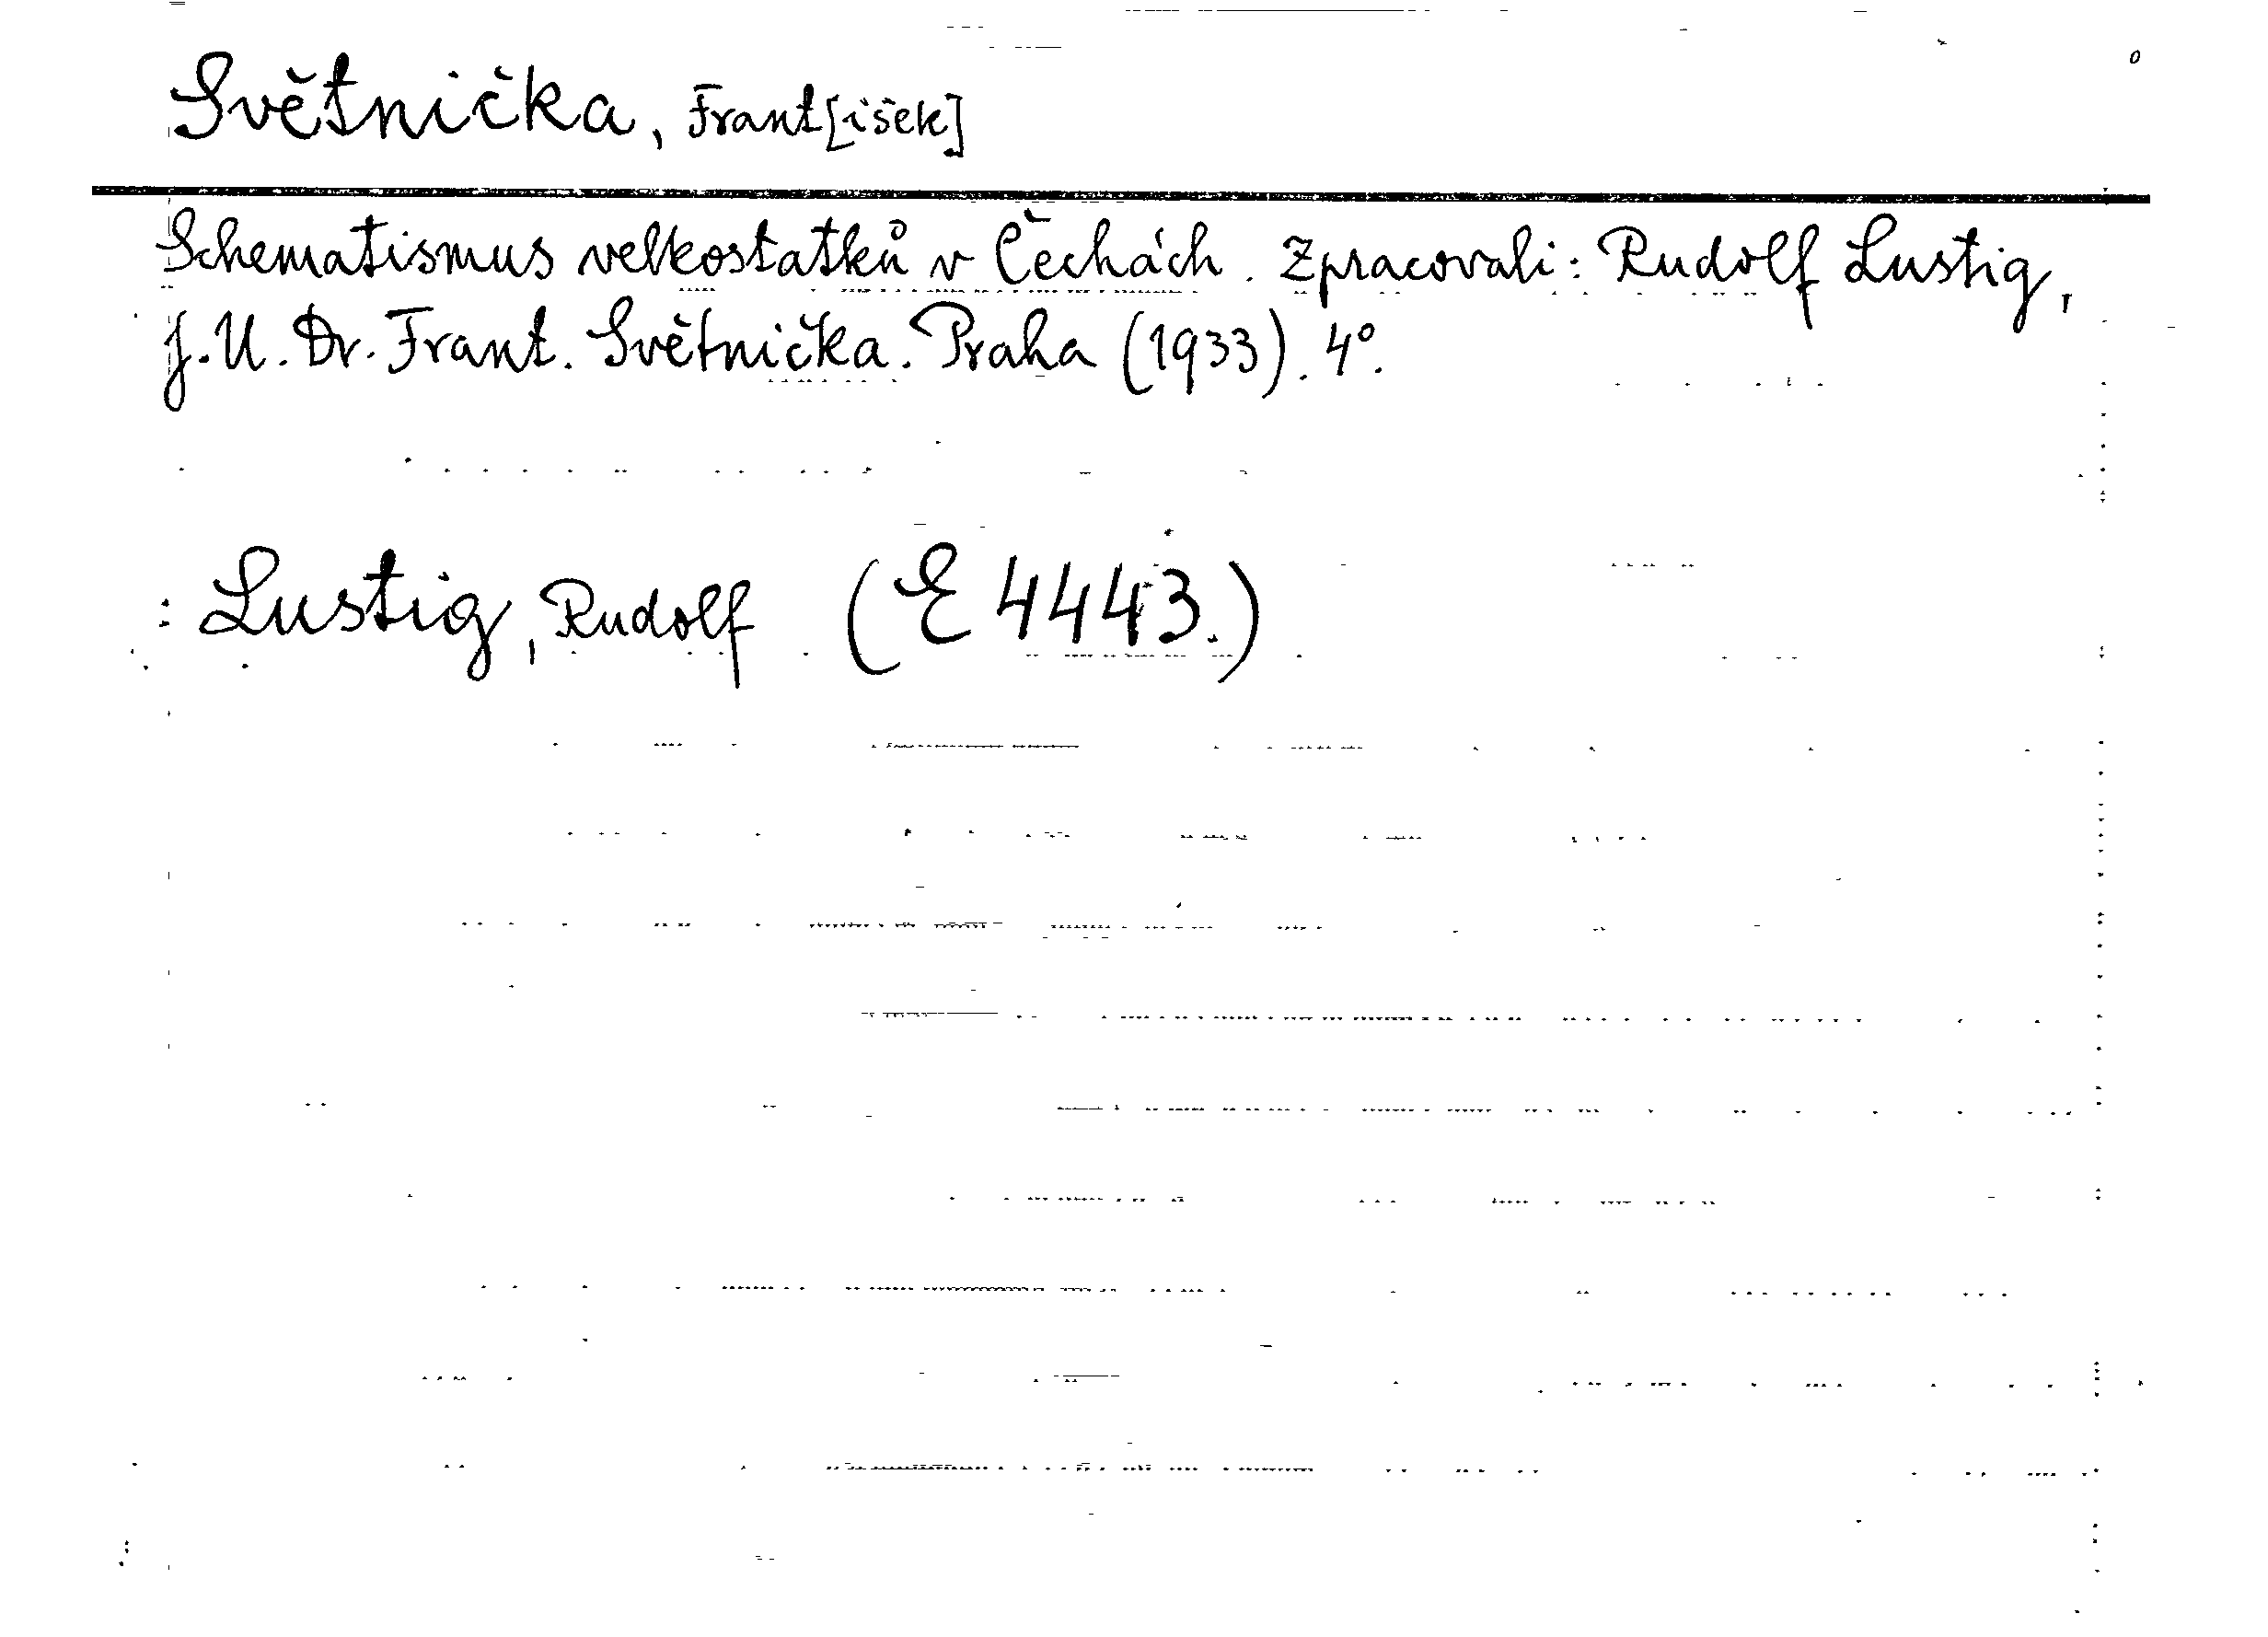 Světnička, Frant[išek]
Schematismus velkostatků v Čechách. Zpracovali: Rudolf Lustig,
J. U. Dr. Frant. Světnička. Praha (1933). 4°.
: Lustig, Rudolf (E 4443.)